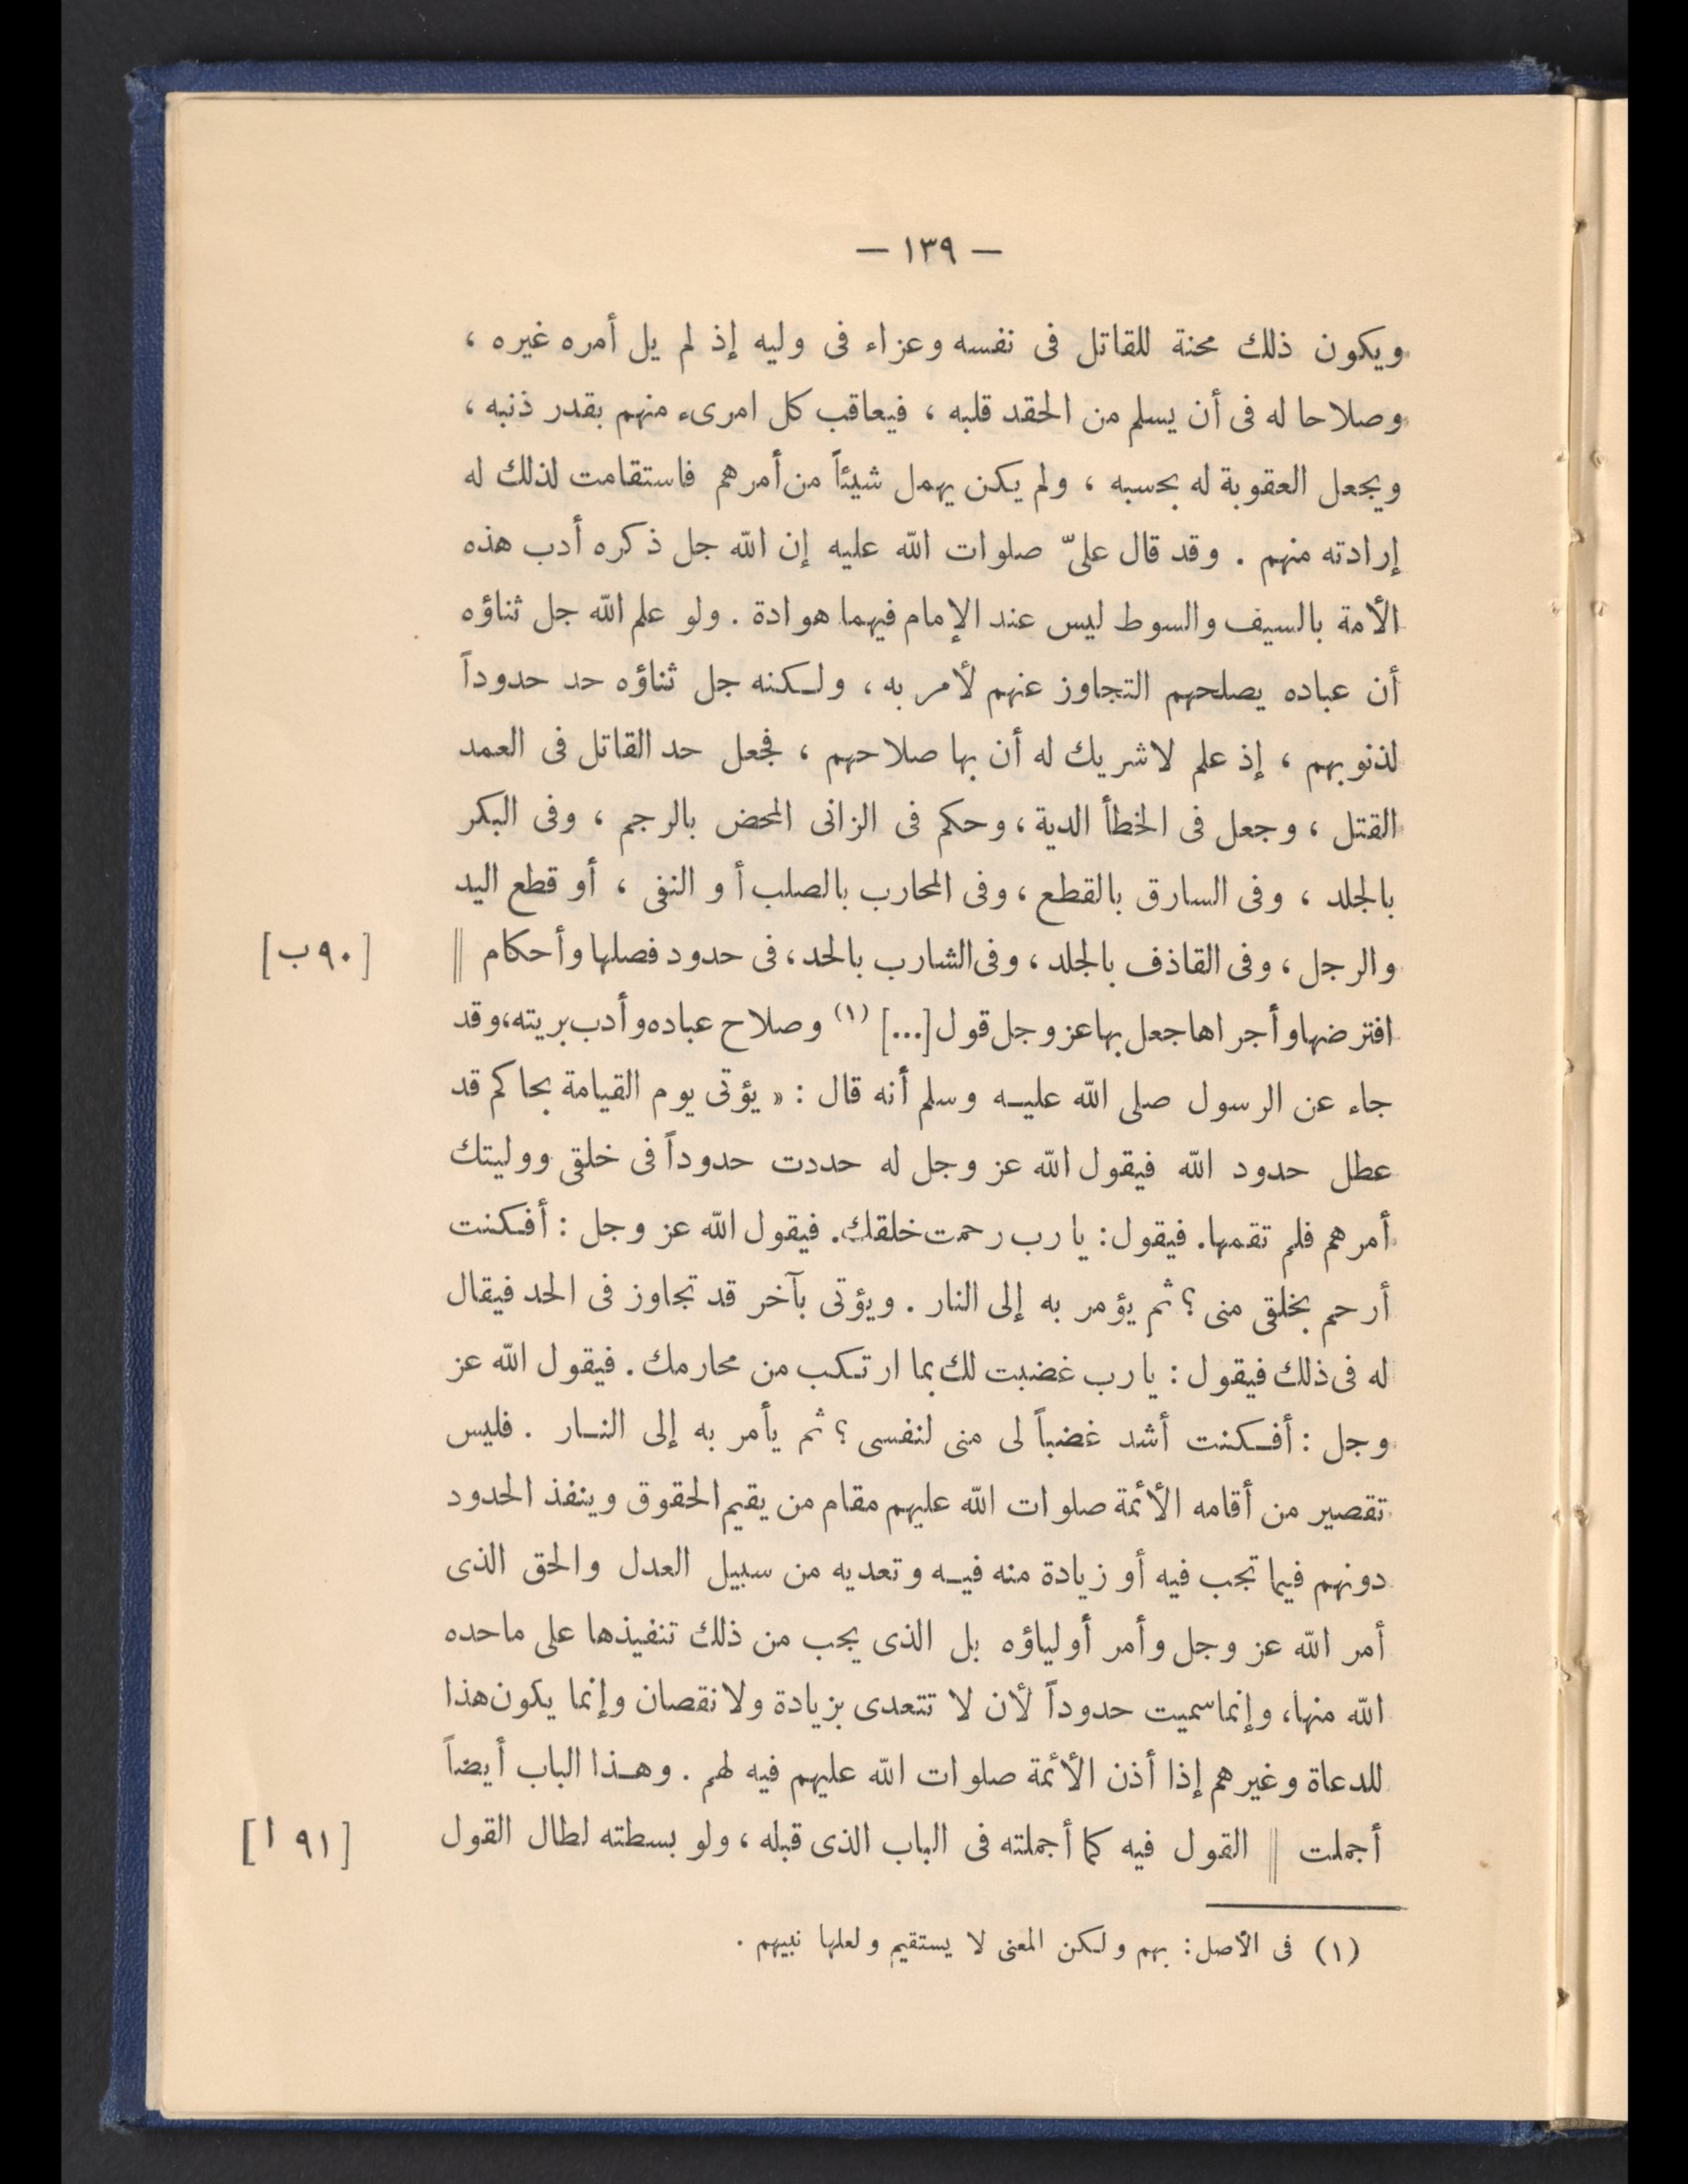 — ١٣٩ —
ويكون ذلك محنة للقاتل فى نفسه وعزاء فى وليه إذ لم يل أمره غيره ،
وصلاحا له فى أن يسلم من الحقد قلبه ، فيعاقب كل امرىء منهم بقدر ذنبه ،
ويجعل العقوبة له بحسبه ، ولم يكن يهمل شيئاً من أمرهم فاستقامت لذلك له
إرادته منهم . وقد قال علىّ صلوات الله عليه إن الله جل ذكره أدب هذه
الأمة بالسيف والسوط ليس عند الإمام فيهما هوادة . ولو علم الله جل ثناؤه
أن عباده يصلحهم التجاوز عنهم لأمر به ، ولكنه جل ثناؤه حد حدوداً
لذنوبهم ، إذ علم لاشريك له أن بها صلاحهم ، فجعل حد القاتل فى العمد
القتل ، وجعل فى الخطأ الدية ، وحكم فى الزانى المحض بالرجم ، وفى البكر
بالجلد ، وفى السارق بالقطع ، وفى المحارب بالصلب أو النفى ، أو قطع اليد
والرجل ، وفى القاذف بالجلد ، وفى الشارب بالحد ، فى حدود فصلها وأحكام || [٩٠ ب]
افترضها وأجراها جعل بها عز وجل قول [...] (١) وصلاح عباده وأدب بريته، وقد
جاء عن الرسول صلى الله عليه وسلم أنه قال : « يؤتى يوم القيامة بحاكم قد
عطل حدود الله فيقول الله عز وجل له حددت حدوداً فى خلقى ووليتك
أمرهم فلم تقمها. فيقول: يارب رحمت خلقك. فيقول الله عز وجل : أفكنت
أرحم بخلقى منى ؟ ثم يؤمر به إلى النار . ويؤتى بآخر قد تجاوز فى الحد فيقال
له فى ذلك فيقول : يارب غضبت لك بما ارتكب من محارمك . فيقول الله عز
وجل : أفكنت أشد غضباً لى منى لنفسى ؟ ثم يأمر به إلى النار . فليس
تقصير من أقامه الأئمة صلوات الله عليهم مقام من يقيم الحقوق وينفذ الحدود
دونهم فيما تجب فيه أو زيادة منه فيه وتعديه من سبيل العدل والحق الذى
أمر الله عز وجل وأمر أولياؤه بل الذى يجب من ذلك تنفيذها على ماحده
الله منها، وإنما سميت حدوداً لأن لا تتعدى بزيادة ولا نقصان وإنما يكون هذا
للدعاة وغيرهم إذا أذن الأئمة صلوات الله عليهم فيه لهم . وهذا الباب أيضاً
أجملت || القول فيه كما أجملته فى الباب الذى قبله ، ولو بسطته لطال القول [٩١ ا]
(١) فى الأصل : بهم ولكن المعنى لا يستقيم ولعلها نبيهم .